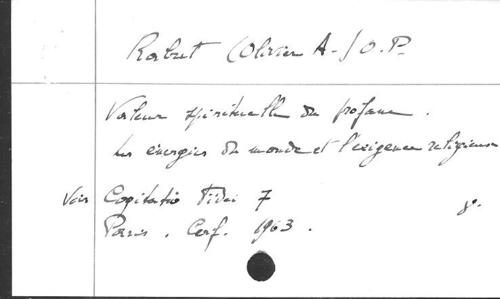 Rabut (Olivier A.-) O.P.
Valeur spirituelle du profane.
Les énergies du monde et l'exigence religieuse
Voir Cogitatio Fidei 7 8°.
Paris. Cerf. 1963.